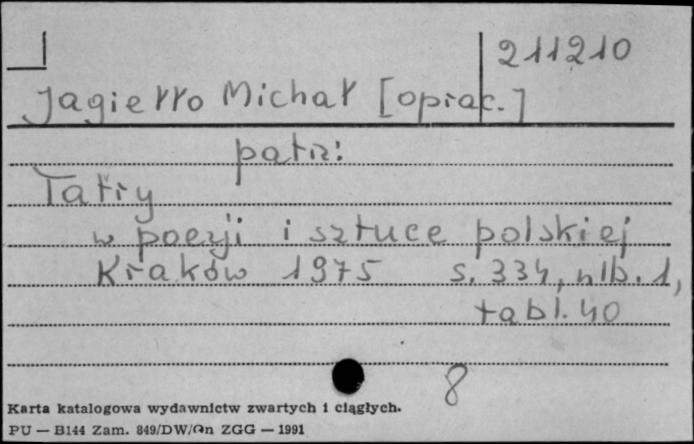 211210
Jagiełło Michał [oprac.]
patrz:
Tatry
w poezji i sztuce polskiej
Kraków 1975 s. 334, nlb. 1,
tabl. 40
8
Karta katalogowa wydawnictw zwartych i ciągłych.
PU — B144 Zam. 849/DW/Gn ZGG — 1991